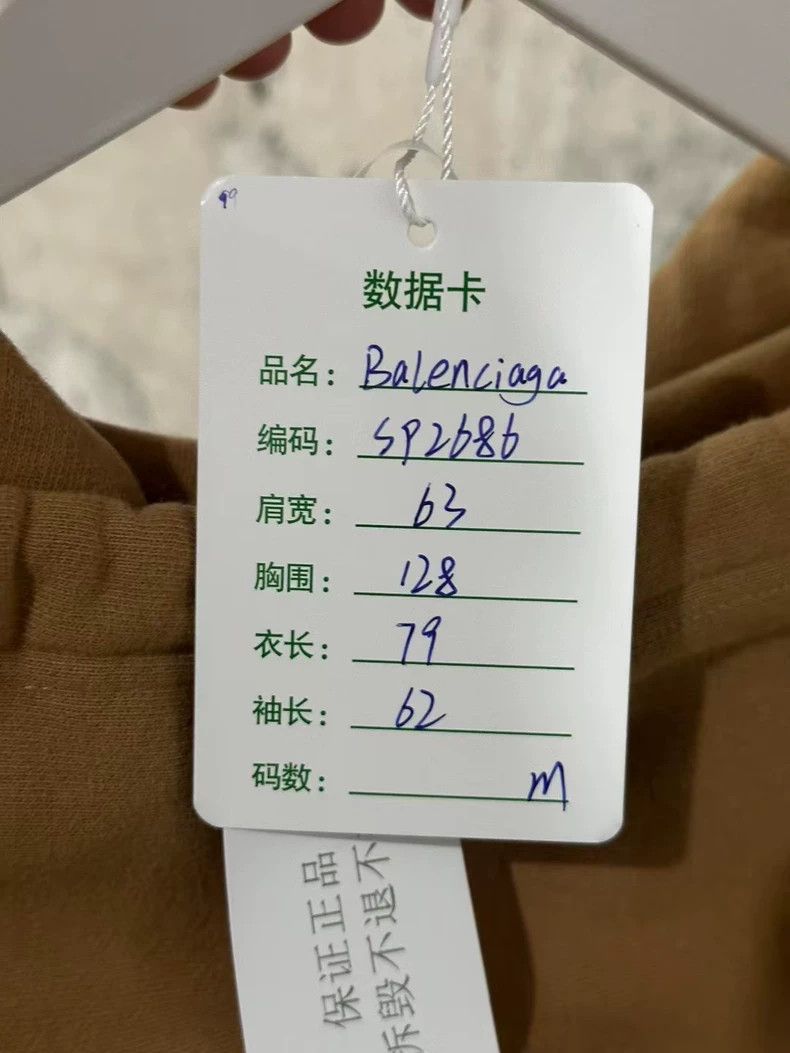 99
数据卡
品名：Balenciaga
编码：SP2686
肩宽：63
胸围：128
衣长：79
袖长：62
码数：m
保证正品
拆毁不退不